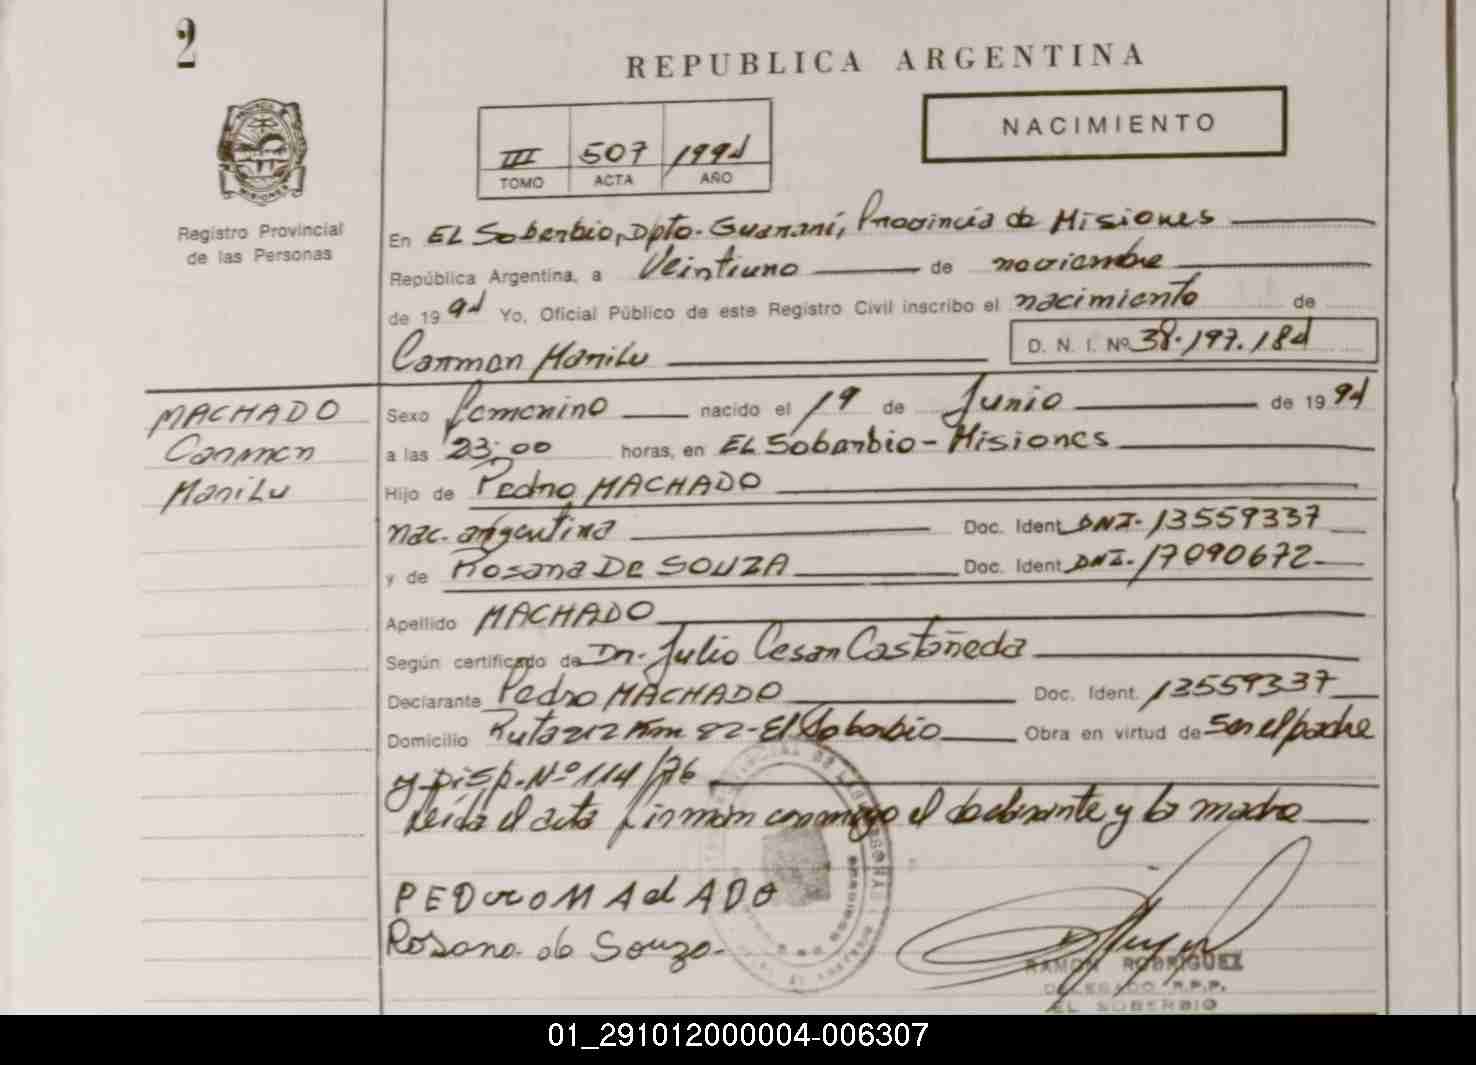 2
REPUBLICA ARGENTINA
NACIMIENTO
III 507 1994
TOMO ACTA AÑO
Registro Provincial
de las Personas
En EL Soberbio, Dpto. Guaraní, Provincia de Misiones
República Argentina, a Veintiuno de noviembre
de 1994 Yo, Oficial Público de este Registro Civil inscribo el nacimiento de
Carmen Marilu D. N. I. Nº 38.197.184
MACHADO
Carmen
Marilu
Sexo femenino nacido el 19 de Junio de 1994
a las 23:00 horas, en EL Soberbio - Misiones
Hijo de Pedro MACHADO
nac. argentina Doc. Ident DNI. 13559337
y de Rosana DE SOUZA Doc. Ident DNI. 17090672
Apellido MACHADO
Según certificado de Dr. Julio Cesar Castañeda
Declarante Pedro MACHADO Doc. Ident. 13559337
Domicilio Ruta 212 Km 82 - El Soberbio Obra en virtud de Ser el padre
y Disp. Nº 114/76
Leída el acta firman conmigo el declarante y la madre
PEDro MAcHADO
Rosana de Souza
RAMON RODRIGUEZ
DELEGADO R.P.P.
EL SOBERBIO
01_291012000004-006307